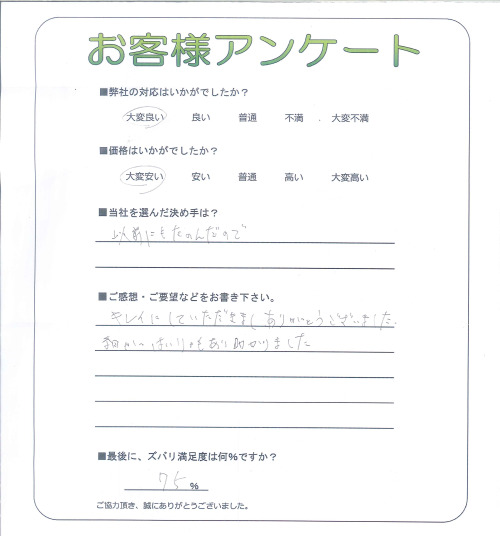 お客様アンケート
■弊社の対応はいかがでしたか？
大変良い 良い 普通 不満 大変不満
■価格はいかがでしたか？
大変安い 安い 普通 高い 大変高い
■当社を選んだ決め手は？
以前にもたのんだので
■ご感想・ご要望などをお書き下さい。
キレイにしていただきまし ありがとうございました.
助かりました
■最後に、ズバリ満足度は何%ですか？
75 %
ご協力頂き、誠にありがとうございました。